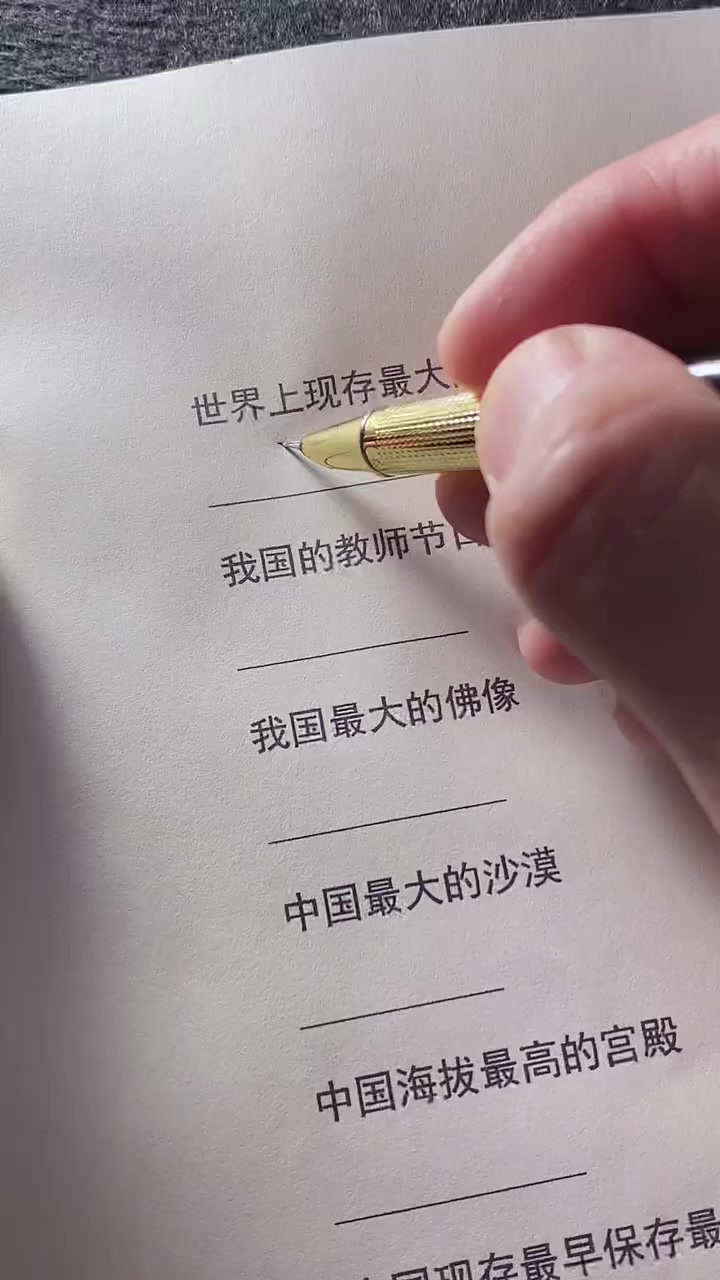 世界上现存最大
我国的教师节
我国最大的佛像
中国最大的沙漠
中国海拔最高的宫殿
国现存最早保存最